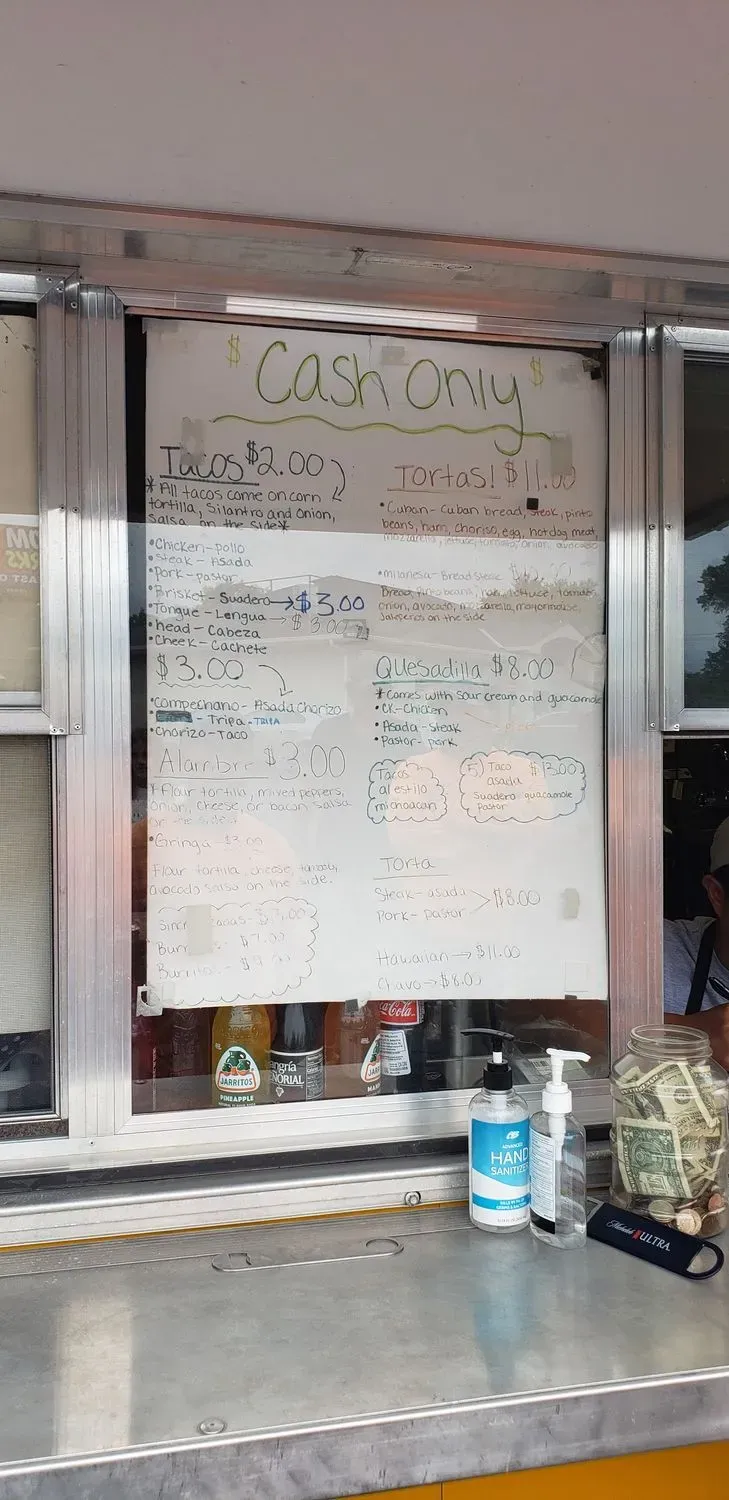 $ Cash Only $
Tacos $2.00
* All tacos come on corn
tortilla, Silantro and onion,
Salsa on the side*
• Chicken - pollo
• Steak - Asada
• Pork - pastor
• Brisket - Suadero → $3.00
• Tongue - Lengua → $3.00
• head - Cabeza
• Cheek - Cachete
$3.00
• Compechano - Asada Chorizo
- Tripa - TRIPA
• Chorizo - Taco
Alambre $3.00
* Flour tortilla, mixed peppers,
Onion, cheese, or bacon salsa
on the side*
• Gringa - $3.00
Flour tortilla, cheese,
avocado salsa on the side.
Tortas! $11.00
• Cuban - Cuban bread, Steak, pinto
beans, ham, choriso, egg, hot dog meat,
mozzarella, lettuce, tomato, onion, avocado
• milanesa - Bread Steak
Bread, pinto beans, ham, lettuce, tomato,
onion, avocado, mozarella, mayonnaise,
Jalepenos on the side
Quesadilla $8.00
* Comes with Sour cream and guacamole
• CK - Chicken
• Asada - Steak
• Pastor - pork
Tacos
al estilo
michoacan
5) Taco $13.00
asada
Suadero guacamole
pastor
Torta
Steak - asada
Pork - pastor > $8.00
Hawaiian → $11.00
Chavo → $8.00
JARRITOS
PINEAPPLE
Coca-Cola
ADVANCED
HAND
SANITIZE
ULTRA